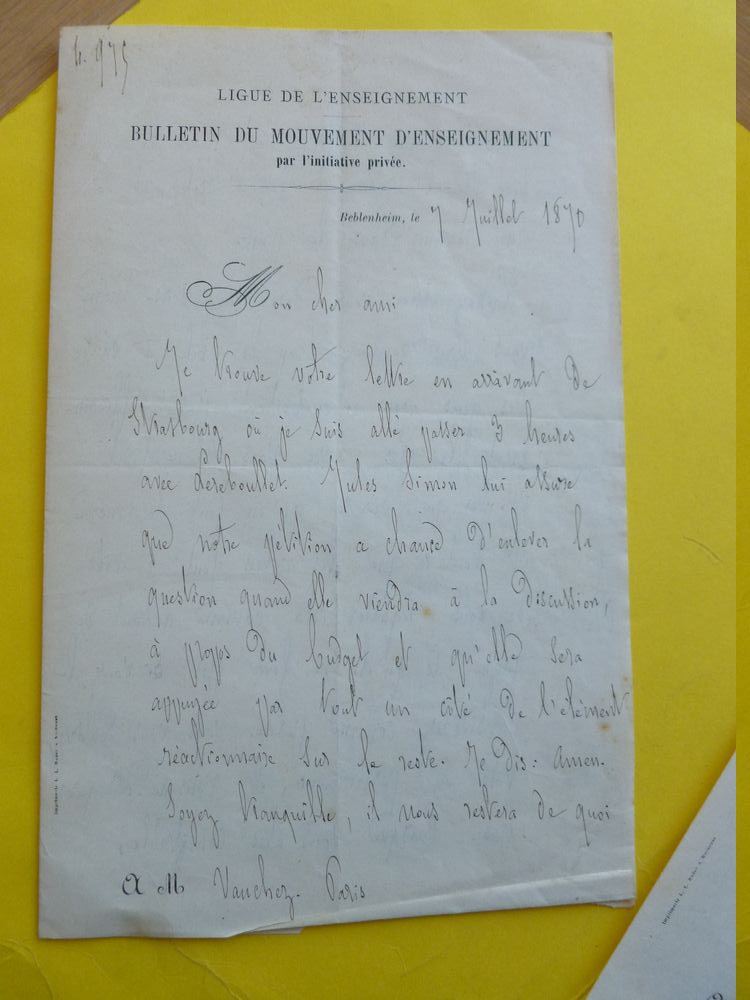 4. 975
LIGUE DE L'ENSEIGNEMENT
BULLETIN DU MOUVEMENT D'ENSEIGNEMENT
par l'initiative privée.
Beblenheim, le 7 Juillet 1870
Mon cher ami
Je trouve votre lettre en arrivant de
Strasbourg où je suis allé passer 3 heures
avec Lereboullet. Jules Simon lui assure
que notre pétition a chance d'enlever la
question quand elle viendra à la discussion,
à propos du budget et qu'elle sera
appuyée par tout un côté de l'élément
réactionnaire sur le reste. Je dis: amen.
Soyez tranquille, il nous restera de quoi
A M Vauchez. Paris